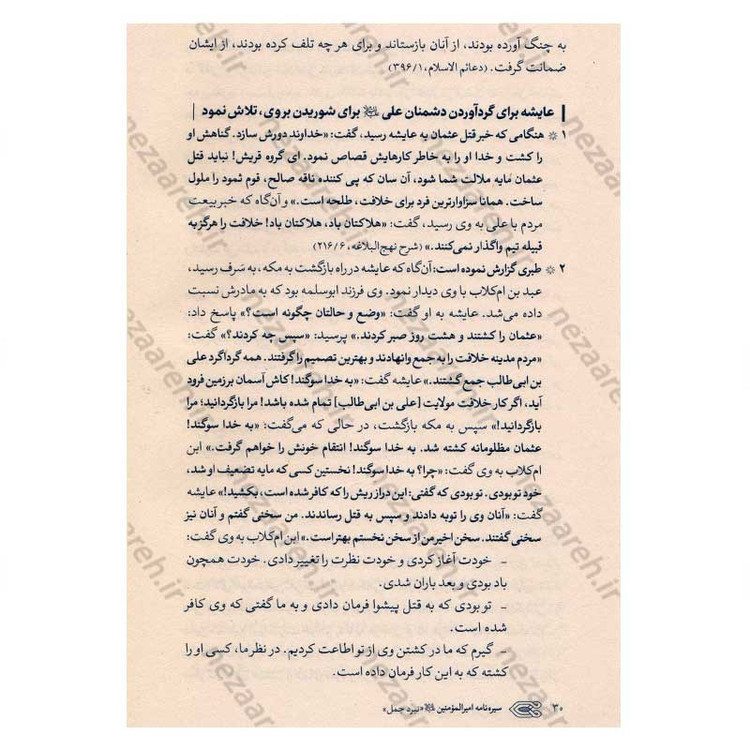 به چنگ آورده بودند، از آنان بازستاند و برای هر چه تلف کرده بودند، از ایشان
ضمانت گرفت. (دعائم الاسلام، ۳۹۶/۱)
عایشه برای گردآوردن دشمنان علی برای شوریدن بر وی، تلاش نمود
۱ * هنگامی که خبر قتل عثمان به عایشه رسید، گفت: «خداوند دورش سازد. گناهش او
را کشت و خدا او را به خاطر کارهایش قصاص نمود. ای گروه قریش! نباید قتل
عثمان مایه ملالت شما شود، آن سان که پی کننده ناقه صالح، قوم ثمود را ملول
ساخت. همانا سزاوارترین فرد برای خلافت، طلحه است.» و آن‌گاه که خبر بیعت
مردم با علی به وی رسید، گفت: «هلاکتان باد، هلاکتان باد! خلافت را هرگز به
قبیله تیم واگذار نمی‌کنند.» (شرح نهج‌البلاغه، ۲۱۶/۶)
۲ * طبری گزارش نموده است: آن‌گاه که عایشه در راه بازگشت به مکه، به سَرِف رسید،
عبد بن ام‌کلاب با وی دیدار نمود. وی فرزند ابوسلمه بود که به مادرش نسبت
داده می‌شد. عایشه به او گفت: «وضع و حالتان چگونه است؟» پاسخ داد:
«عثمان را کشتند و هشت روز صبر کردند.» پرسید: «سپس چه کردند؟» گفت:
«مردم مدینه خلافت را به جمع وانهادند و بهترین تصمیم را گرفتند. همه گرداگرد علی
بن ابی‌طالب جمع گشتند.» عایشه گفت: «به خدا سوگند! کاش آسمان بر زمین فرود
آید، اگر کار خلافت مولایت [علی بن ابی‌طالب] تمام شده باشد! مرا بازگردانید؛ مرا
بازگردانید!» سپس به مکه بازگشت، در حالی که می‌گفت: «به خدا سوگند!
عثمان مظلومانه کشته شد. به خدا سوگند! انتقام خونش را خواهم گرفت.» ابن
ام‌کلاب به وی گفت: «چرا؟ به خدا سوگند! نخستین کسی که مایه تضعیف او شد،
خود تو بودی. تو بودی که گفتی: این دراز ریش را که کافر شده است، بکشید!» عایشه
گفت: «آنان وی را توبه دادند و سپس به قتل رساندند. من سخنی گفتم و آنان نیز
سخنی گفتند. سخن اخیر من از سخن نخستم بهتر است.» ابن ام‌کلاب به وی گفت:
- خودت آغاز کردی و خودت نظرت را تغییر دادی. خودت همچون
باد بودی و بعد باران شدی.
- تو بودی که به قتل پیشوا فرمان دادی و به ما گفتی که وی کافر
شده است.
- گیرم که ما در کشتن وی از تو اطاعت کردیم. در نظر ما، کسی او را
کشته که به این کار فرمان داده است.
۳۰ سیره‌نامه امیرالمؤمنین «نبرد جمل»
nezaareh.ir